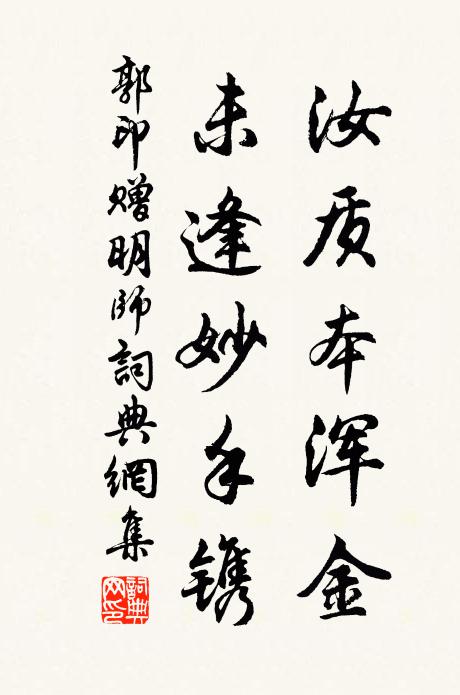 汝质本浑金
未逢妙手镌
郭印赠明师詞典網集
詞典网印